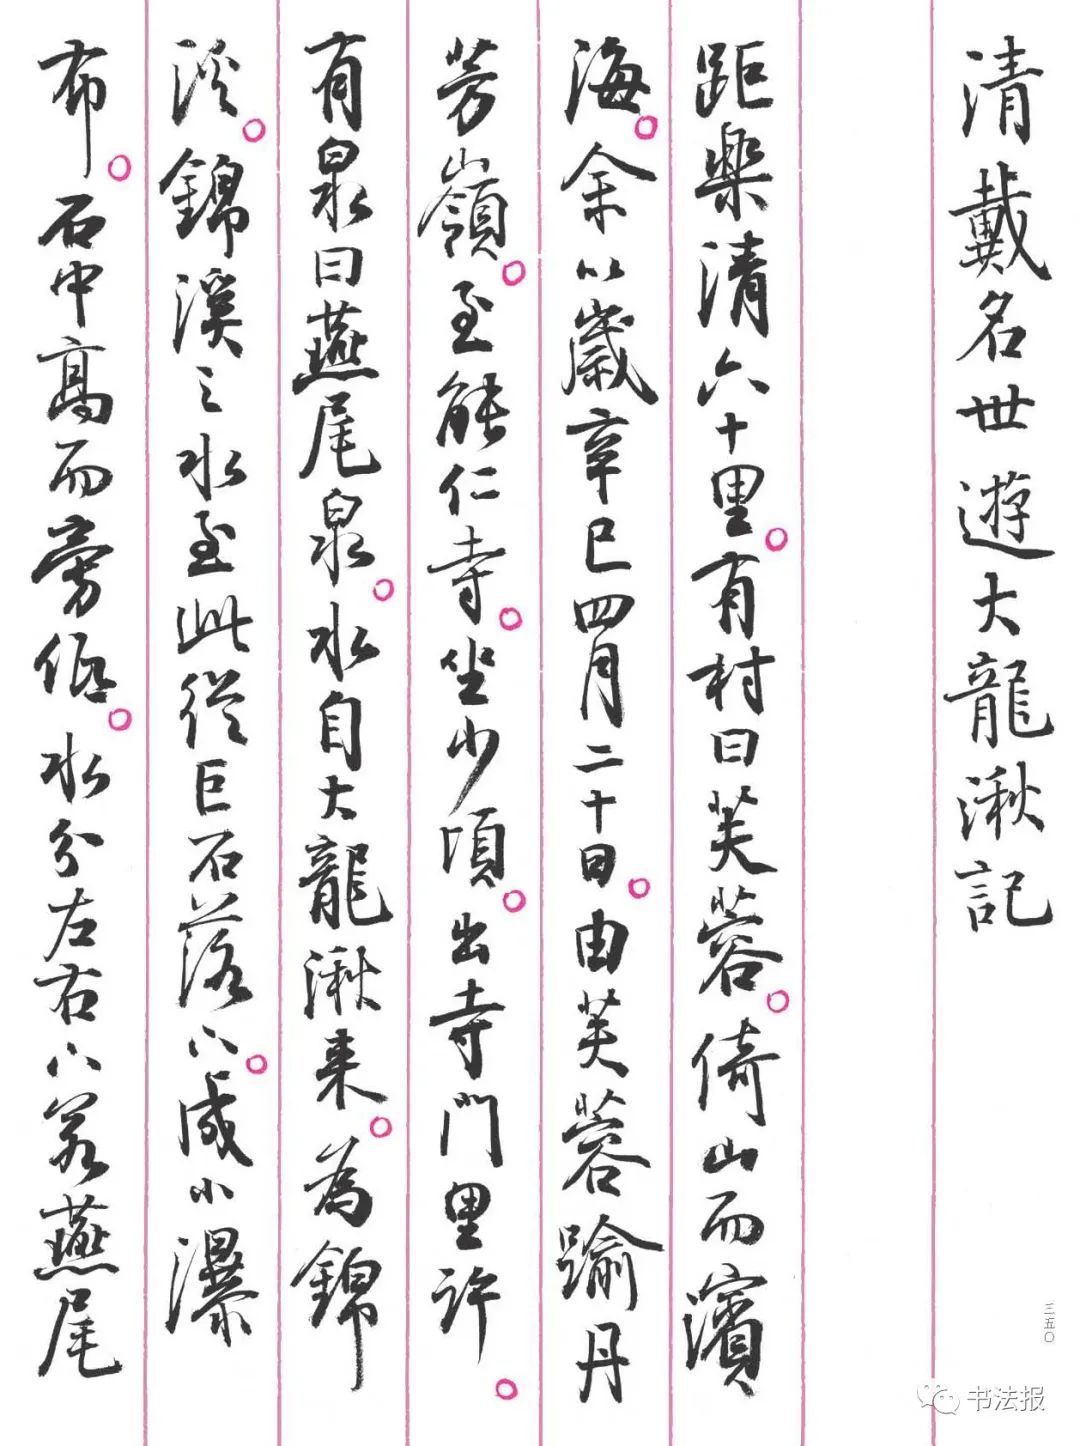 清戴名世遊大龍湫記
距樂清六十里。有村曰芙蓉。倚山而濱
海。余以歲辛巳四月二十日。由芙蓉踰丹
芳嶺。至能仁寺。坐少頃。出寺門里許。
有泉曰燕尾泉。水自大龍湫來。為錦
溪。錦溪之水至此從巨石落下。成小瀑
布。石中高而旁低。水分左右下若燕尾
三五〇
书法报